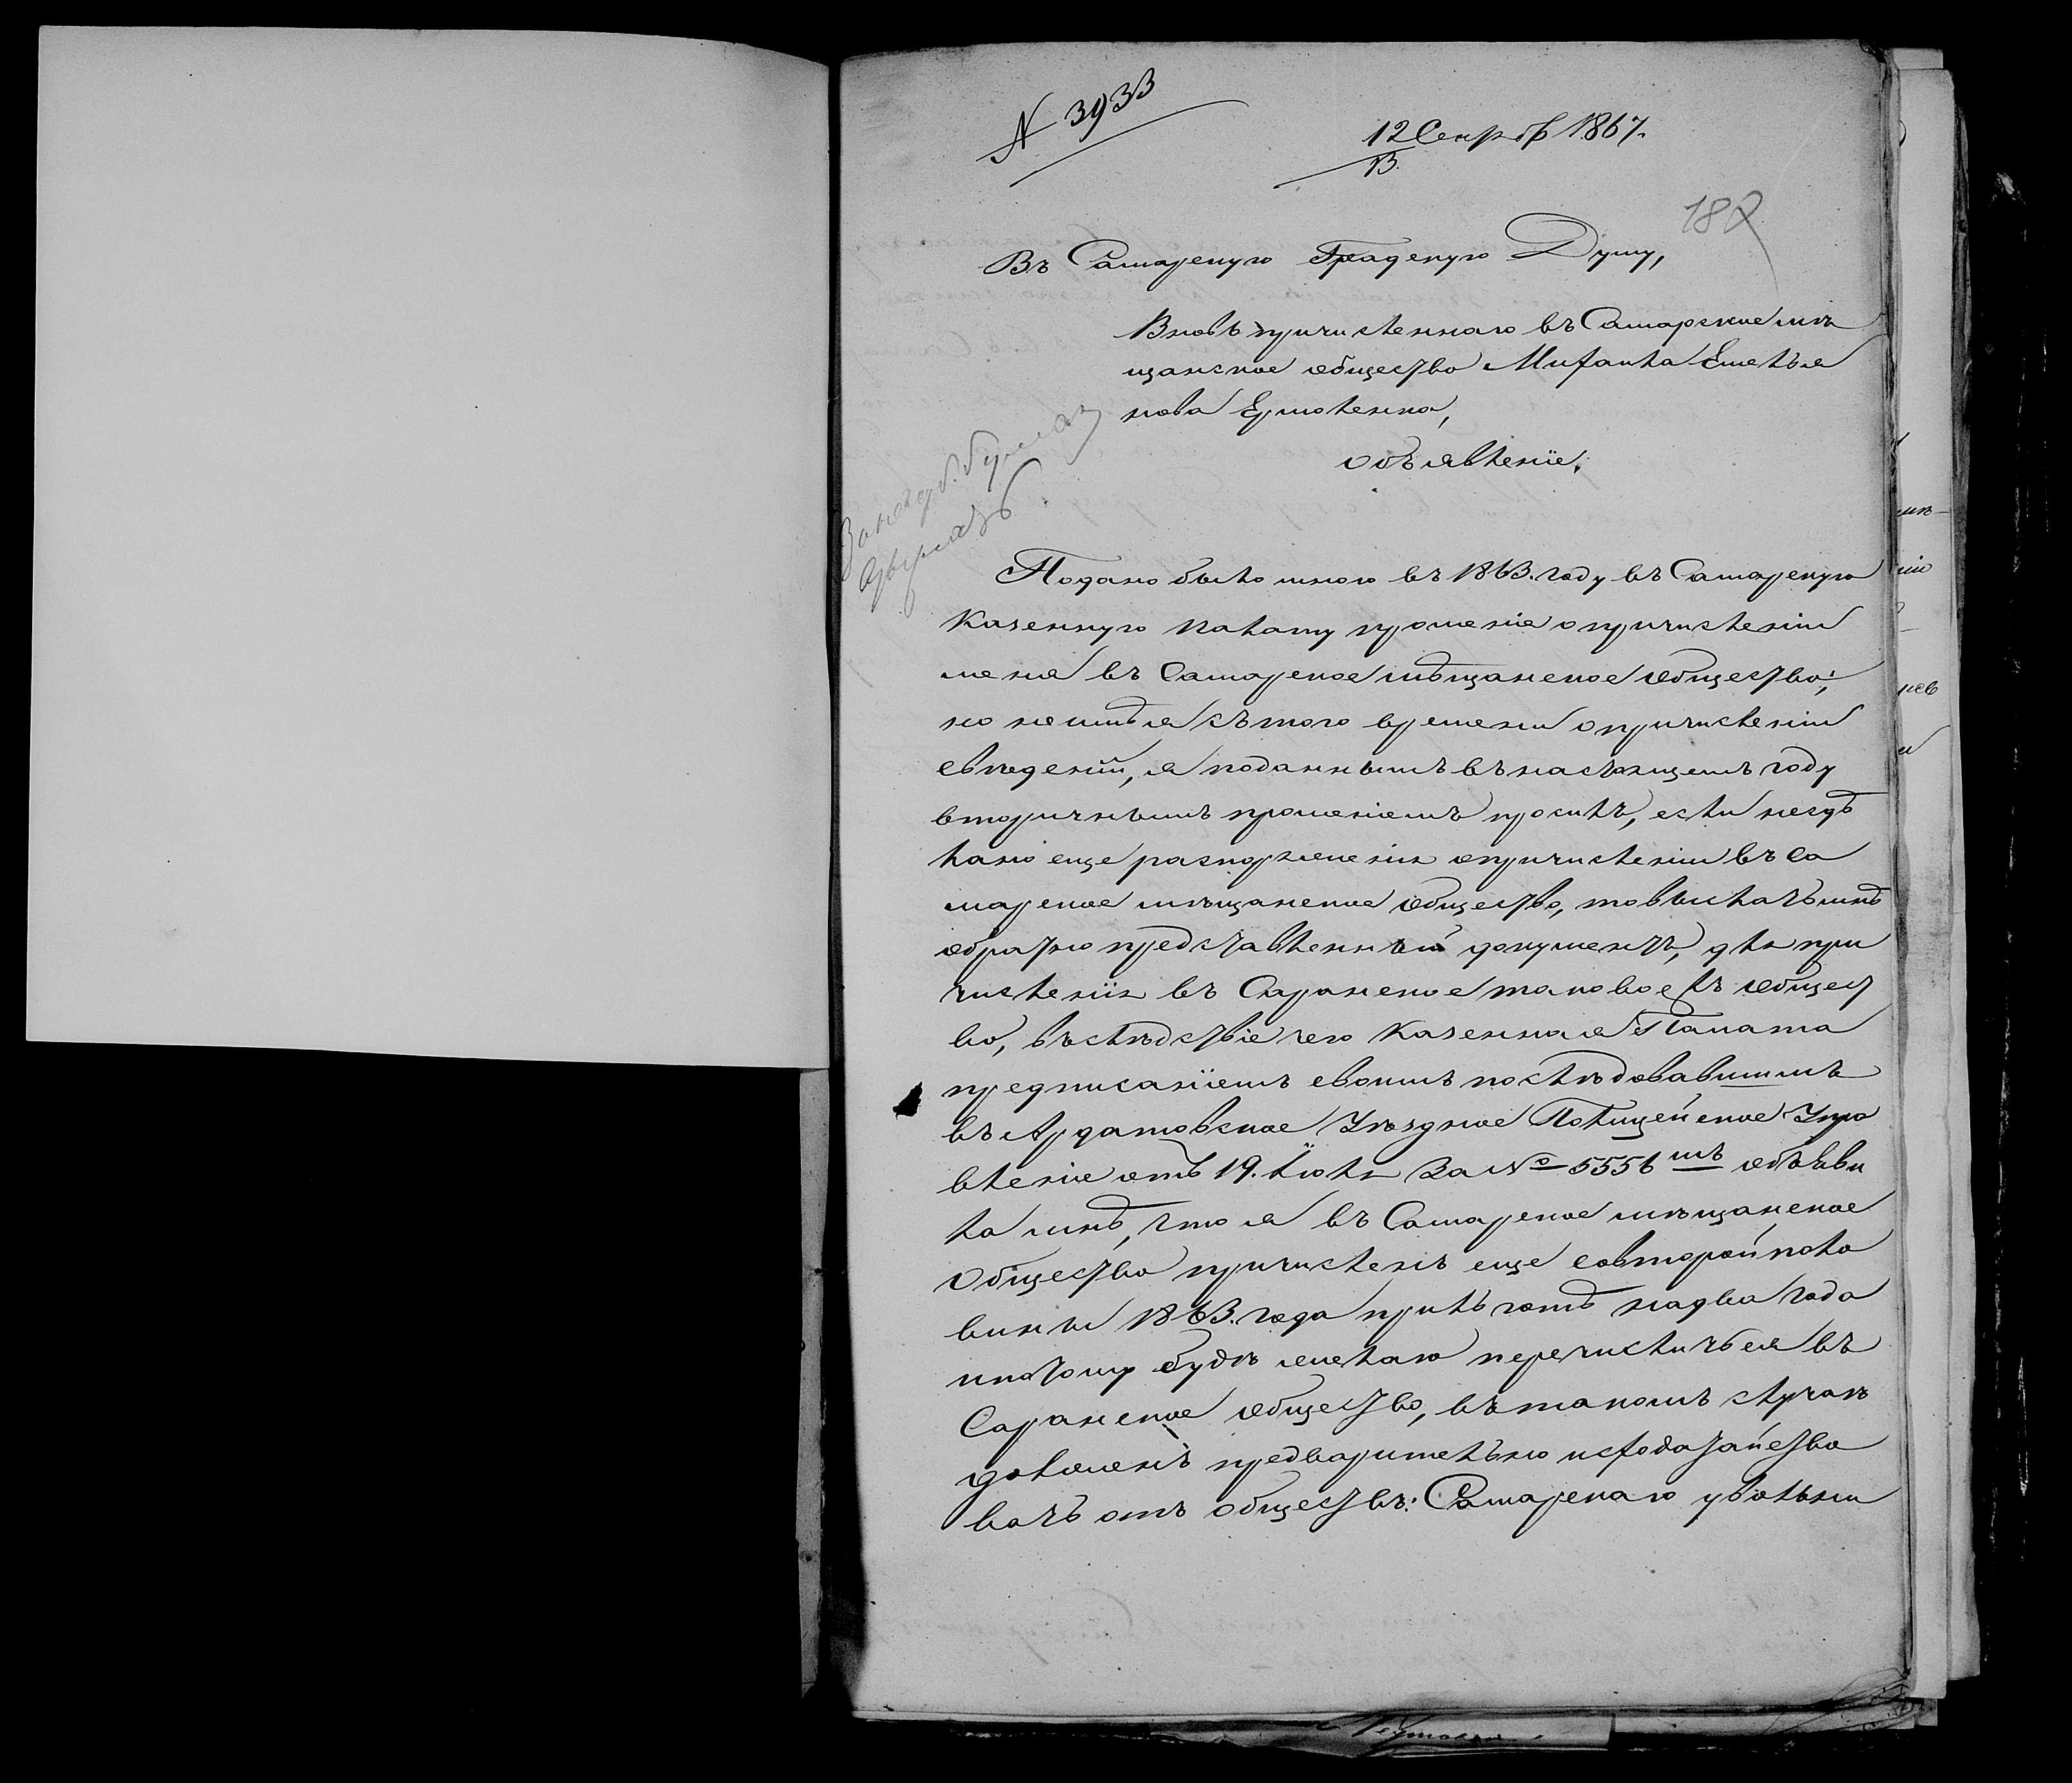 № 3933
12 Сентяб 1867.
13.
182
Въ Самарскую Градскую Думу,
Вновь причисленнаго въ Самарское мѣ
щанское общество Михаила Емелья
нова Ермоленко,
объявленіе.
Подано было мною въ 1863. году въ Самарскую
Казенную палату прошеніе о причисленіи
меня въ Самарское мѣщанское общество;
но не имѣя съ того времени о причисленіи
сведеній, я поданнымъ въ настоящемъ году
вторичнымъ прошеніемъ просилъ, если несдѣ
лано еще распоряженія о причисленіи въ Са
марское мѣщанское общество, то выслать мнѣ
обратно представленный документъ, для при
численія въ Саранское таковое съ общест
во, въслѣдствіе чего Казенная Палата
предписаніемъ своимъ послѣдовавшимъ
въ Ардатовское Уѣздное Полицейское Упра
вленіе отъ 19. Іюля за № 5556 мъ объяви
ла мнѣ, что я въ Самарское мѣщанское
Общество причисленъ еще совторой поло
вины 1863. года прильготѣ на два года
и потому будѣ желаю перечислиться въ
Саранское общество, въ такомъ случаѣ
долженъ предварительно исходатайство
вать отъ обществъ: Самарскаго увольни